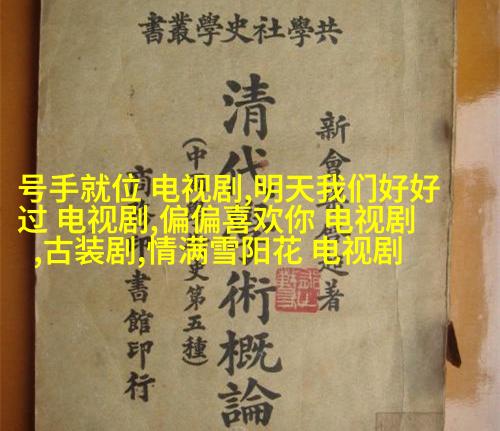 共學社史學叢書
新會著
清代術概論
(中史第五種)
商書館印行
号手就位 电视剧,明天我们好好
过 电视剧,偏偏喜欢你 电视剧
,古装剧,情满雪阳花 电视剧